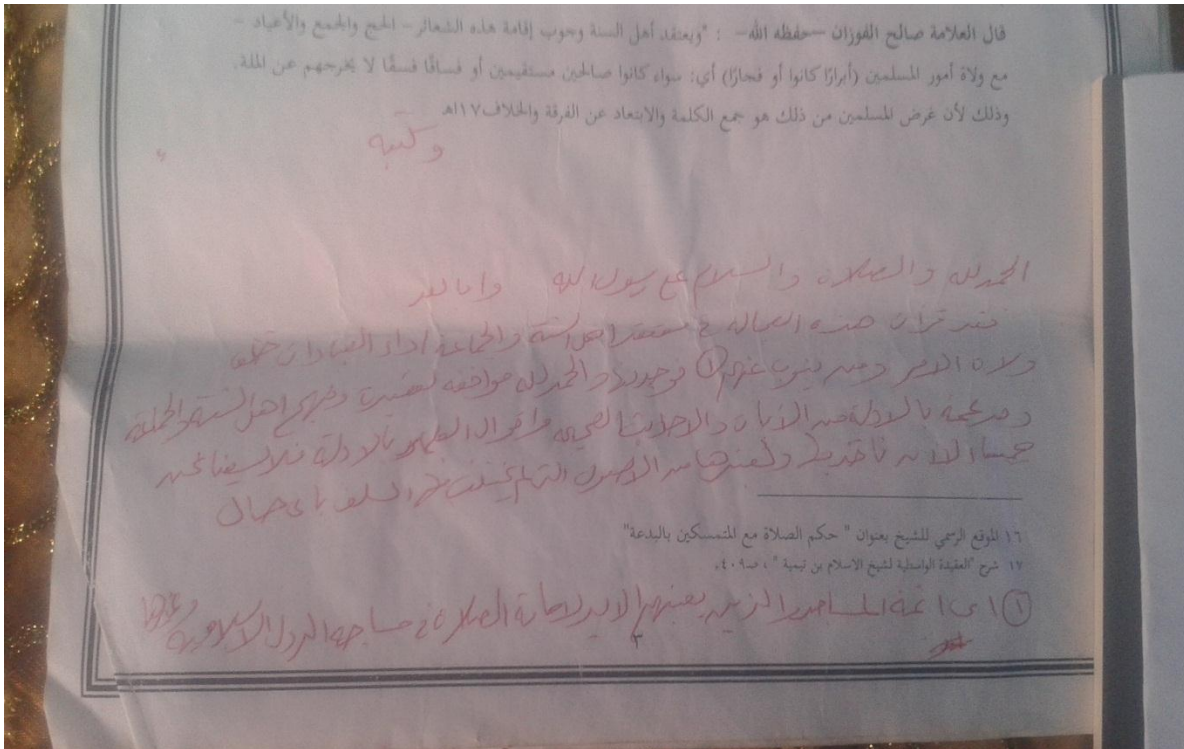 قال العلامة صالح الفوزان –حفظه الله– : "ويعتقد أهل السنة وجوب إقامة هذه الشعائر – الحج والجمع والأعياد –
مع ولاة أمور المسلمين (أبرارًا كانوا أو فجارًا) أي: سواء كانوا صالحين مستقيمين أو فساقًا فسقًا لا يخرجهم عن الملة.
وذلك لأن غرض المسلمين من ذلك هو جمع الكلمة والابتعاد عن الفرقة والخلاف١٧اهـ
وكتبه
الحمد لله والصلاة والسلام على رسول الله وأما بعد
هذه الرسالة في معتقد اهل السنة والجماعة اداء العبادات خلف
ولاة الامر ومن ينوب عنهم ① فوجدتها والحمد لله موافقة لعقيدة ومنهج اهل السنة والجماعة
ومدعمة بالادلة من الآيات والاحاديث الصحيحة واقوال العلماء بالادلة فلا يسعنا نحن
جميعا الا ان نأخذ بها من الاصول التي لم يختلف فيها السلف باي حال
١٦ الموقع الرسمي للشيخ بعنوان " حكم الصلاة مع المتمسكين بالبدعة"
١٧ شرح "العقيدة الواسطية لشيخ الاسلام بن تيمية " ، صـ٤٠٩.
① اي ائمة المساجد الذين يعينهم الامير لامامة الصلاة في مساجد الدول الاسلامية وغيرها